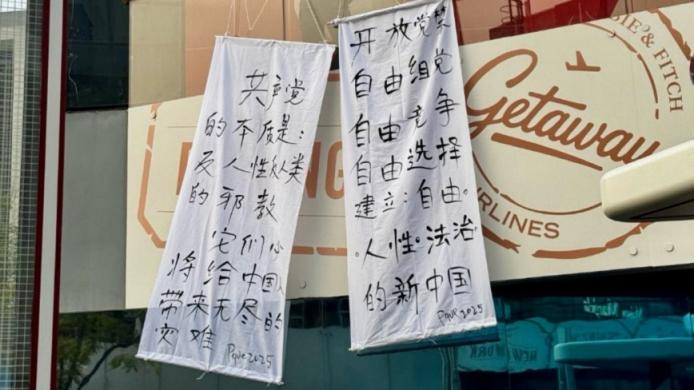 共产党
的本质是：
反人性从类
的邪教
它们
将给中国人
带来无尽的
灾难
2025
开放党禁
自由组党
自由竞争
自由选择
建立：自由。
。人性。法治
的新中国
2025
& FITCH
Getaway
RLINES